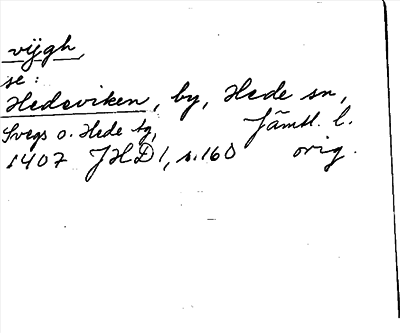 vijgh
se:
Hedeviken, by, Hede sn,
Svegs o. Hede tg, Jämtl. l.
1407 JHD 1, s. 160 orig.